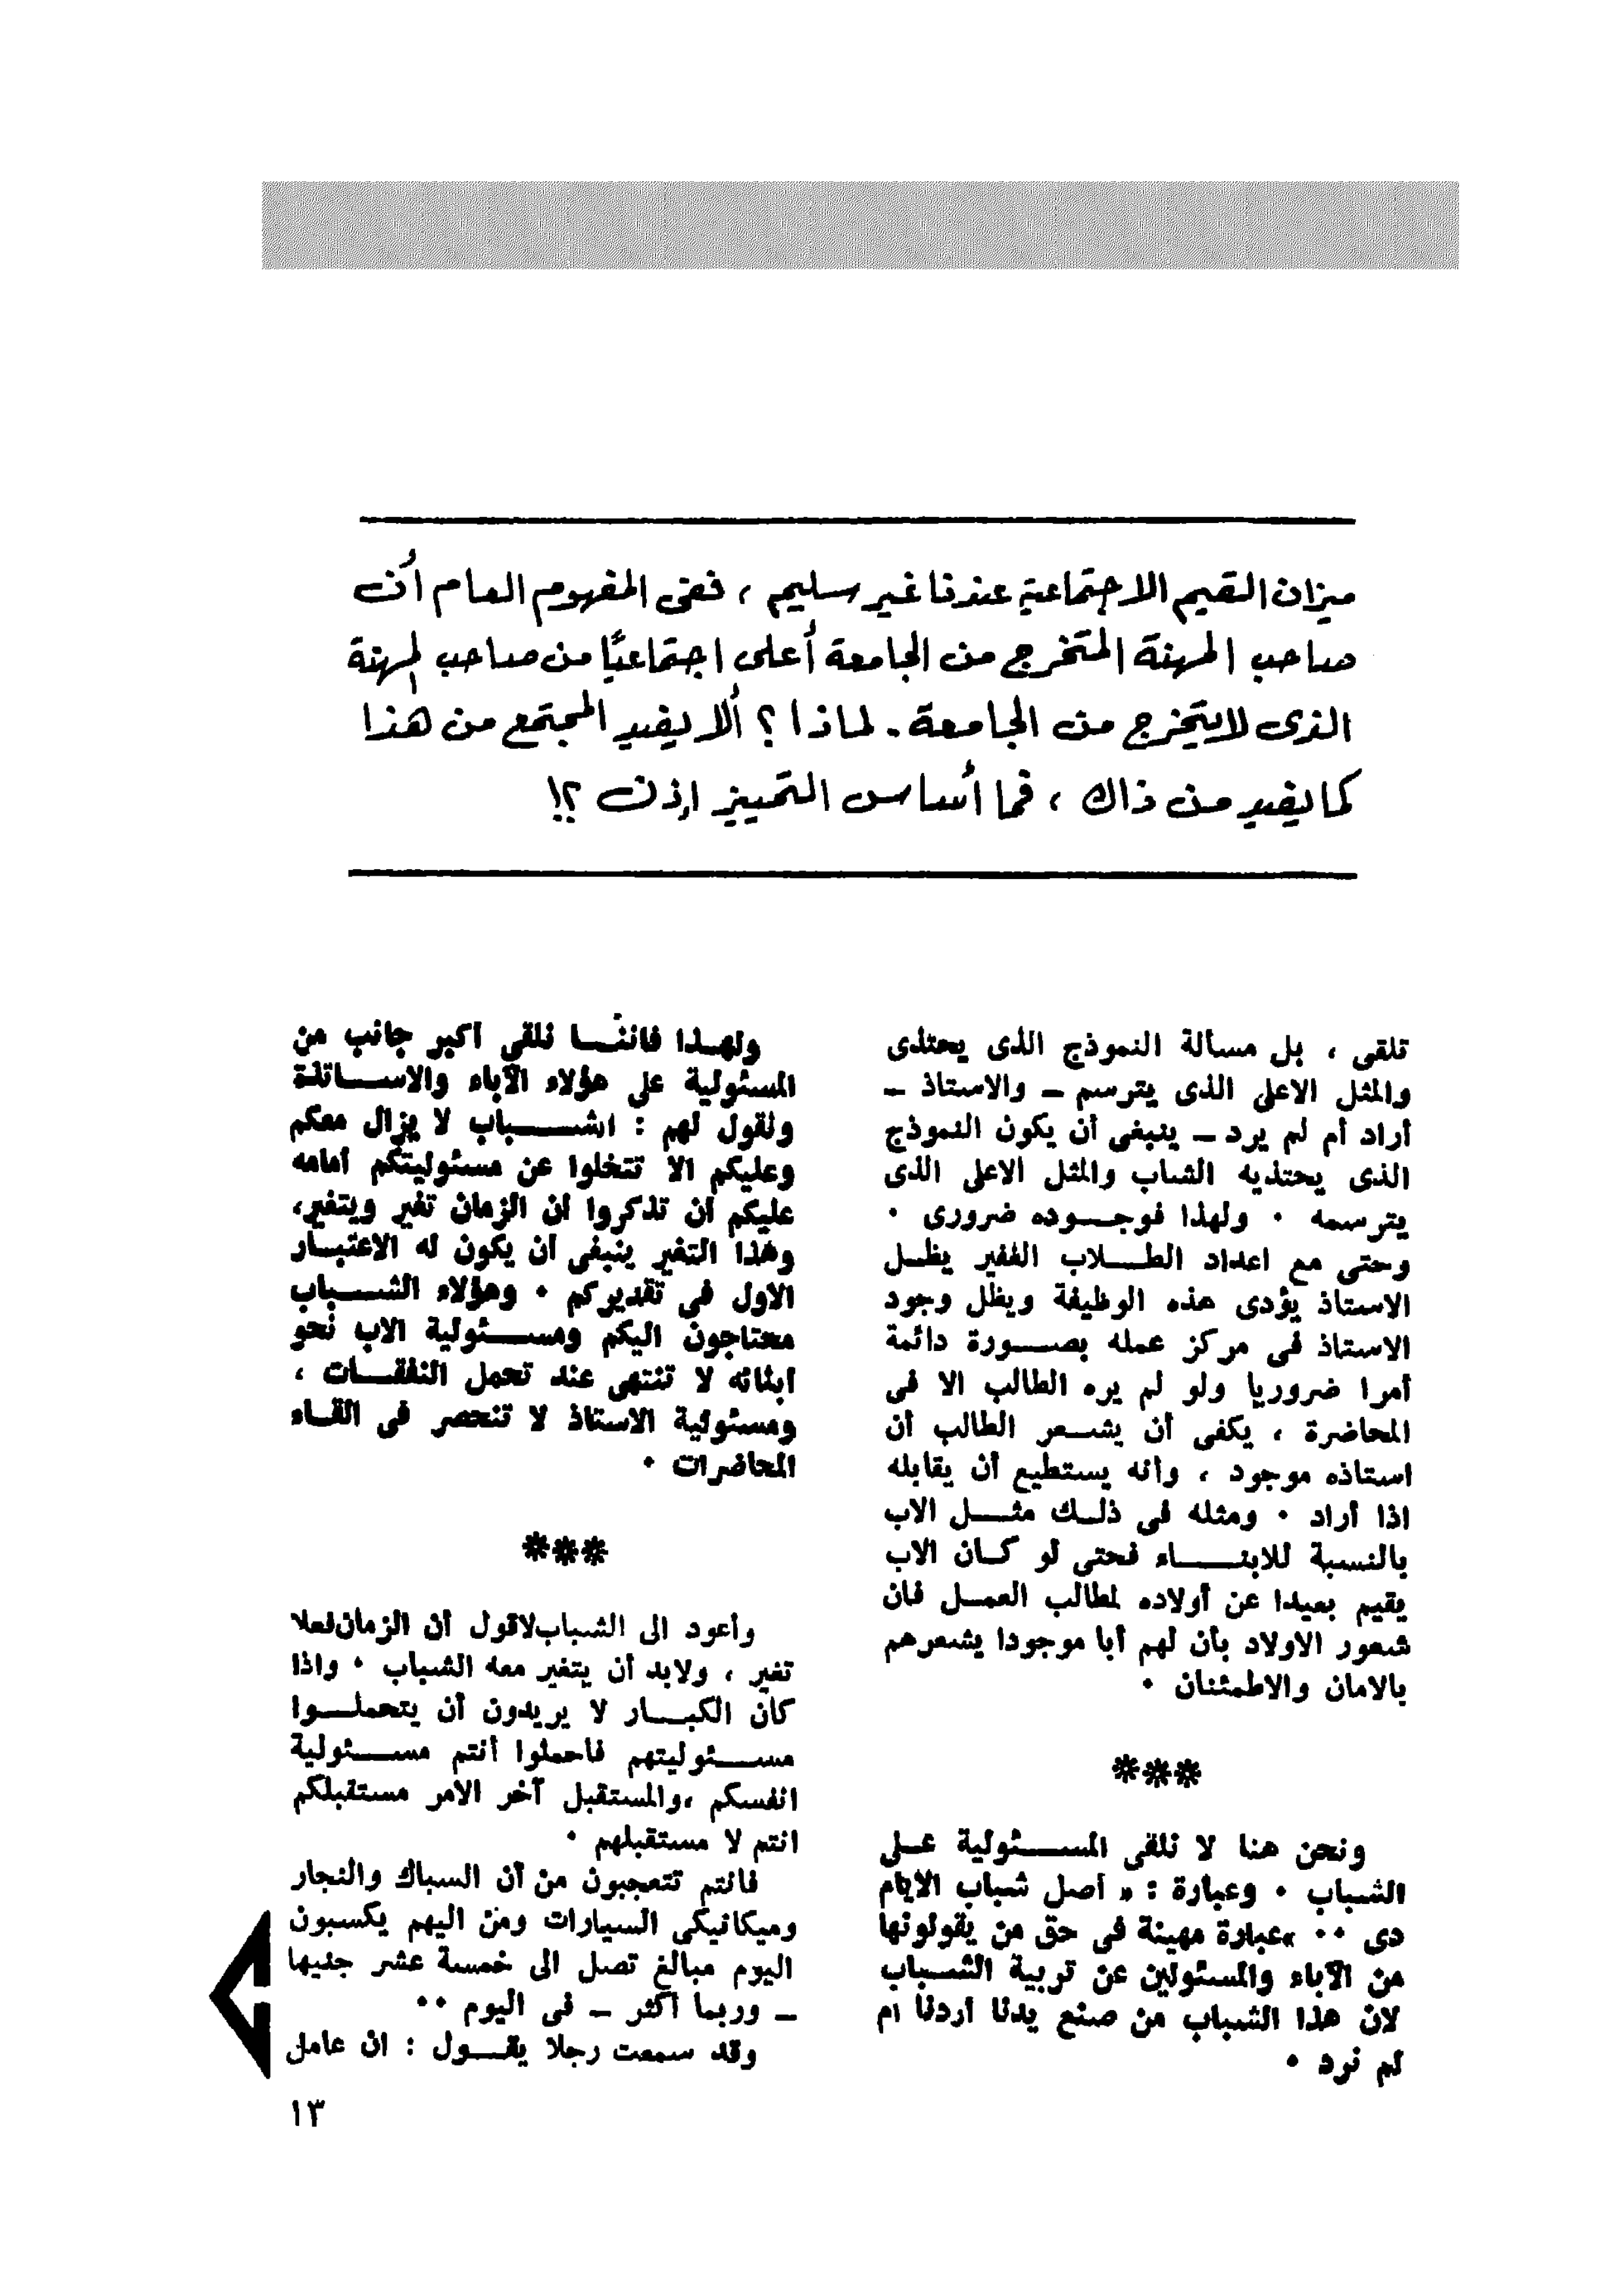 ميزان القيم الاجتماعية عندنا غير سليم ، ففى المفهوم العام أن
صاحب المهنة المتخرج من الجامعة أعلى اجتماعيًا من صاحب المهنة
الذى لا يتخرج من الجامعة . لماذا ؟ ألا يفيد المجتمع من هذا
كما يفيد من ذاك ، فما أساس التمييز إذن ؟!
تلقى ، بل مسألة النموذج الذى يحتذى
والمثل الاعلى الذى يترسم – والاستاذ –
أراد أم لم يرد – ينبغى أن يكون النموذج
الذى يحتذيه الشباب والمثل الاعلى الذى
يترسمه . ولهذا فوجوده ضرورى .
وحتى مع اعداد الطلاب الغفير يظل
الاستاذ يؤدى هذه الوظيفة ويظل وجود
الاستاذ فى مركز عمله بصورة دائمة
أمرا ضروريا ولو لم يره الطالب الا فى
المحاضرة ، يكفى أن يشعر الطالب أن
استاذه موجود ، وأنه يستطيع أن يقابله
اذا أراد . ومثله فى ذلك مثل الاب
بالنسبة للابناء فحتى لو كان الاب
يقيم بعيدا عن أولاده لمطالب العمل فان
شعور الاولاد بأن لهم أبا موجودا يشعرهم
بالامان والاطمئنان .
***
ونحن هنا لا نلقى المسئولية على
الشباب . وعبارة : « أصل شباب الايام
دى .. » عبارة مهينة فى حق من يقولونها
من الآباء والمسئولين عن تربية الشباب
لان هذا الشباب من صنع يدنا أردنا أم
لم نرد .
ولهذا فاننا نلقى أكبر جانب من
المسئولية على هؤلاء الآباء والاساتذة
ونقول لهم : الشباب لا يزال معكم
وعليكم الا تتخلوا عن مسئوليتكم أمامه
عليكم أن تذكروا أن الزمان تغير ويتغير،
وهذا التغير ينبغى أن يكون له الاعتبار
الاول فى تقديركم . وهؤلاء الشباب
محتاجون اليكم ومسئولية الاب نحو
أبنائه لا تنتهى عند تحمل النفقات ،
ومسئولية الاستاذ لا تنحصر فى القاء
المحاضرات .
***
وأعود الى الشباب لاقول أن الزمان فعلا
تغير ، ولابد أن يتغير معه الشباب . واذا
كان الكبار لا يريدون أن يتحملوا
مسئوليتهم فاحملوا أنتم مسئولية
انفسكم ، والمستقبل آخر الامر مستقبلكم
انتم لا مستقبلهم .
فانتم تتعجبون من أن السباك والنجار
وميكانيكى السيارات ومن اليهم يكسبون
اليوم مبالغ تصل الى خمسة عشر جنيها
– وربما أكثر – فى اليوم ..
وقد سمعت رجلا يقول : ان عامل
١٣